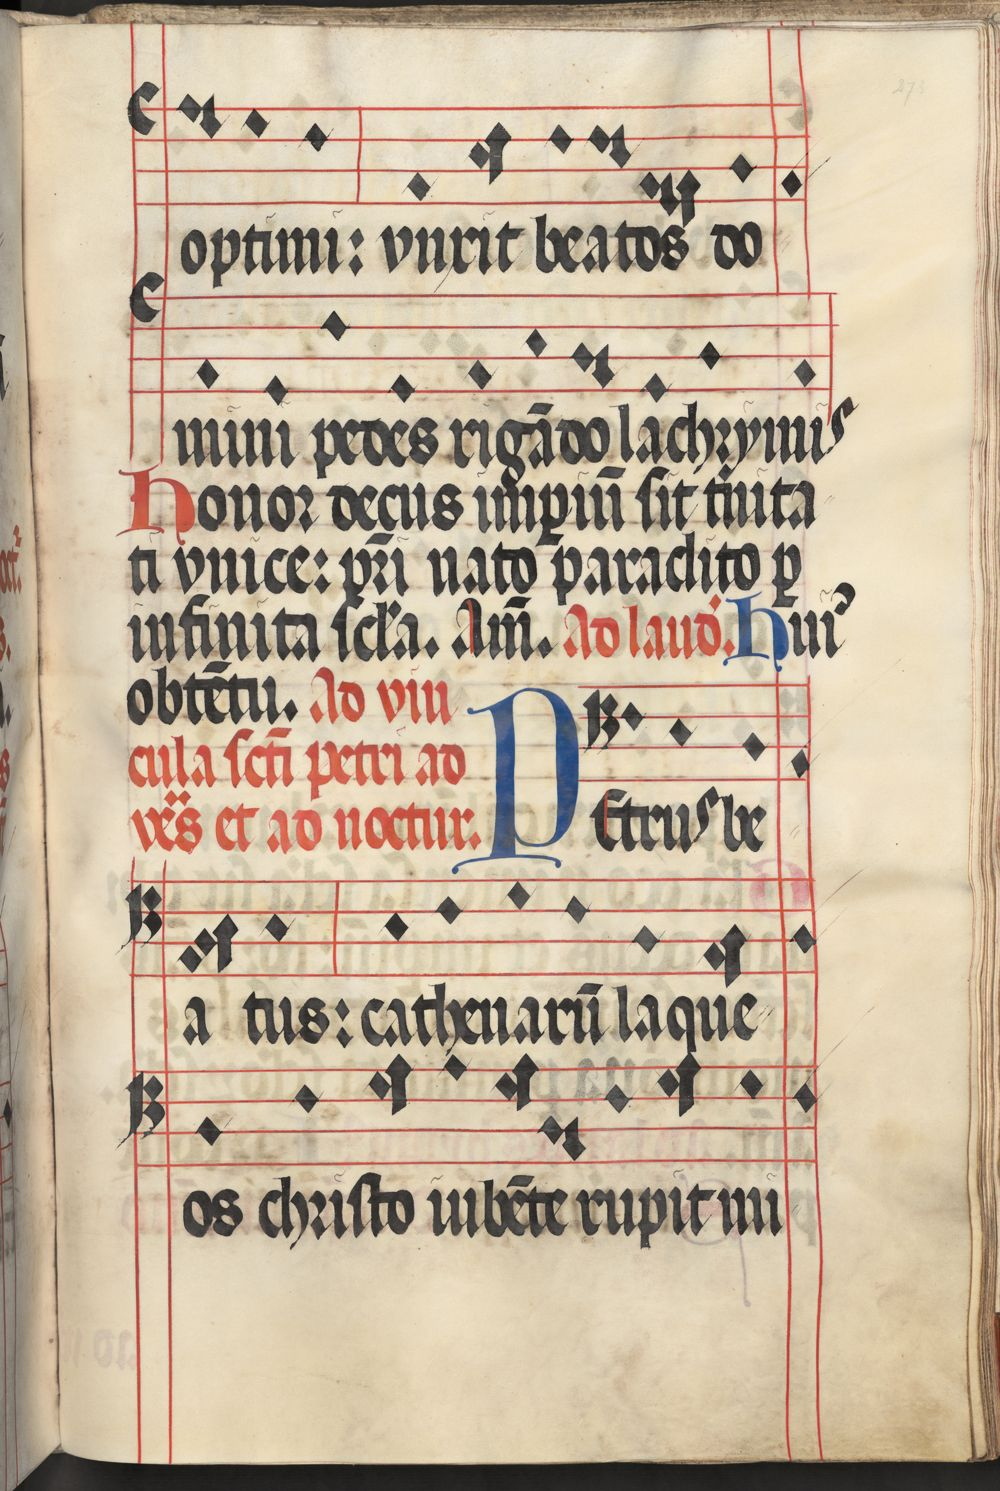 optimi: vnxit beatos do
mini pedes rigādo lachrymis
Honor decus impiū sit tinita
ti vnice: pri nato paraclito p
infinita scla. Am̄. Ad laud. Hui
obtētu. Ad vin
cula scti petri ad
ves et ad noctur. P
Etrus be
a tus: cathenarū laque
os christo iubēte rupit mi